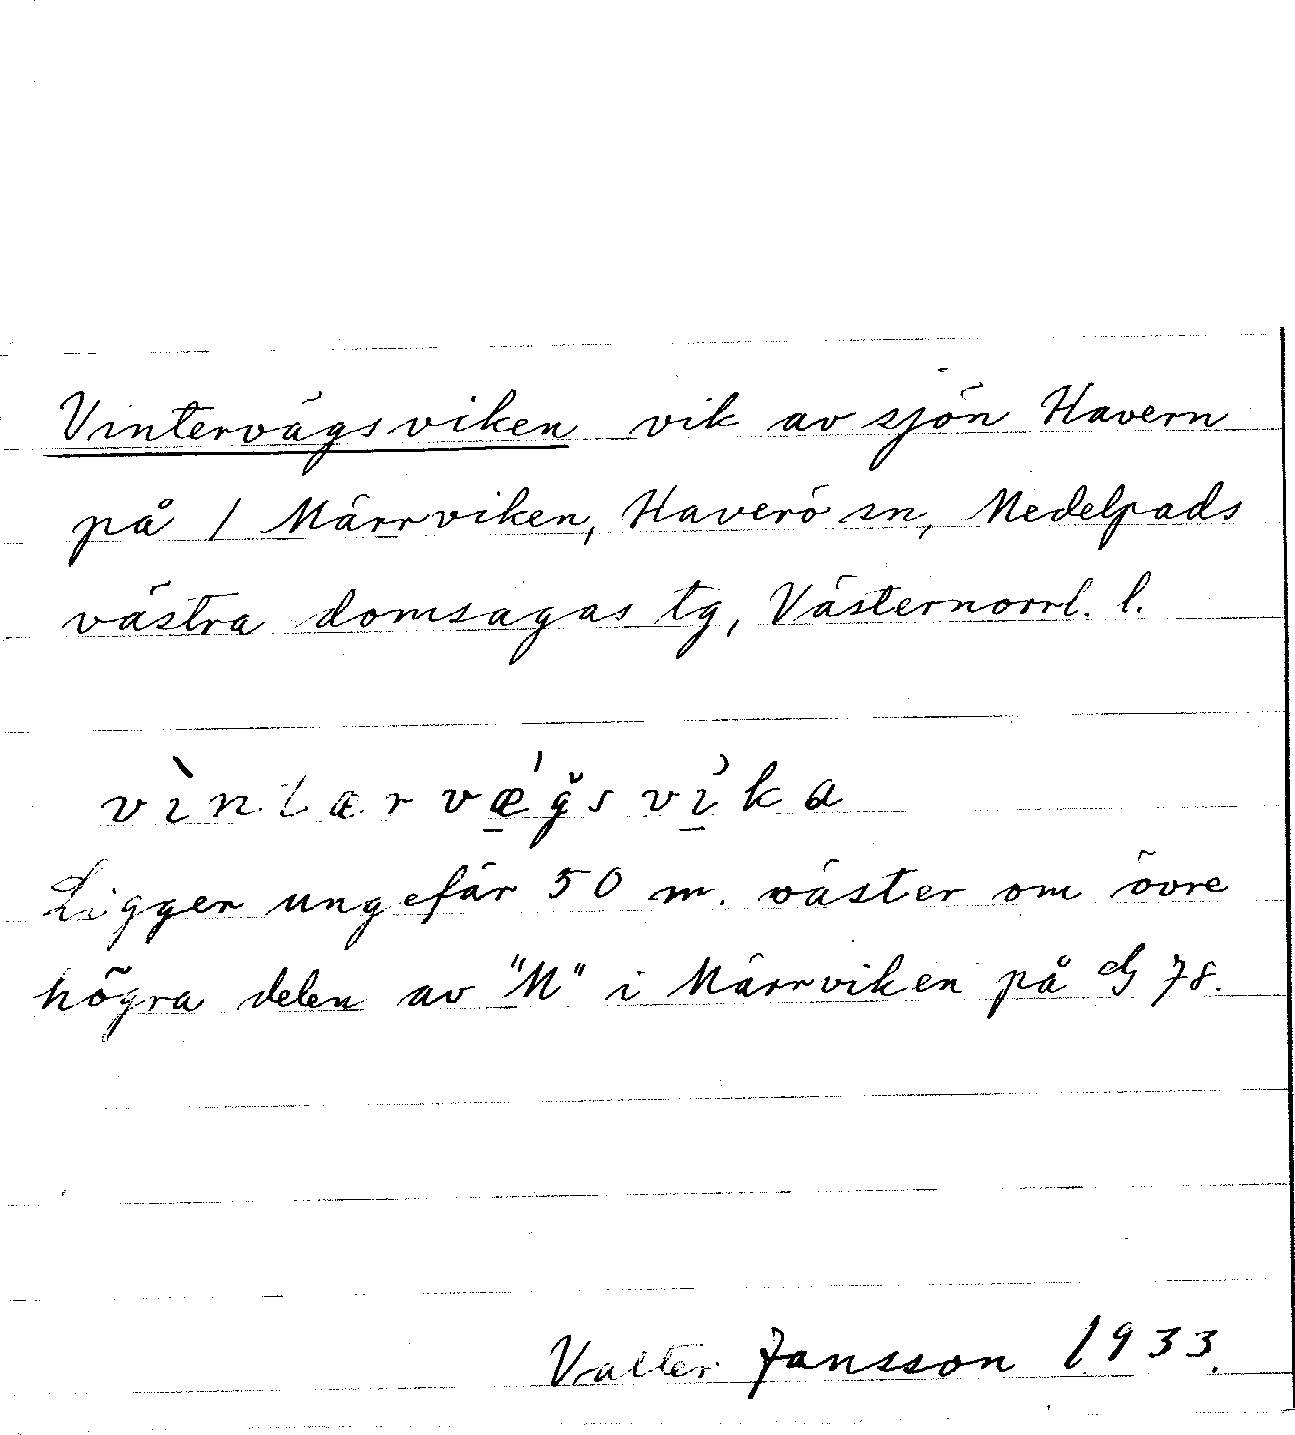 Vintervägsviken vik av sjön Havern
på 1 Märrviken, Haverö sn, Medelpads
västra domsagas tg, Västernorrl. l.
vìntærvǽ̲ǧsvı̲̓ka
Ligger ungefär 50 m. väster om övre
högra delen av "M" i Märrviken på G 78.
Valter Jansson 1933.